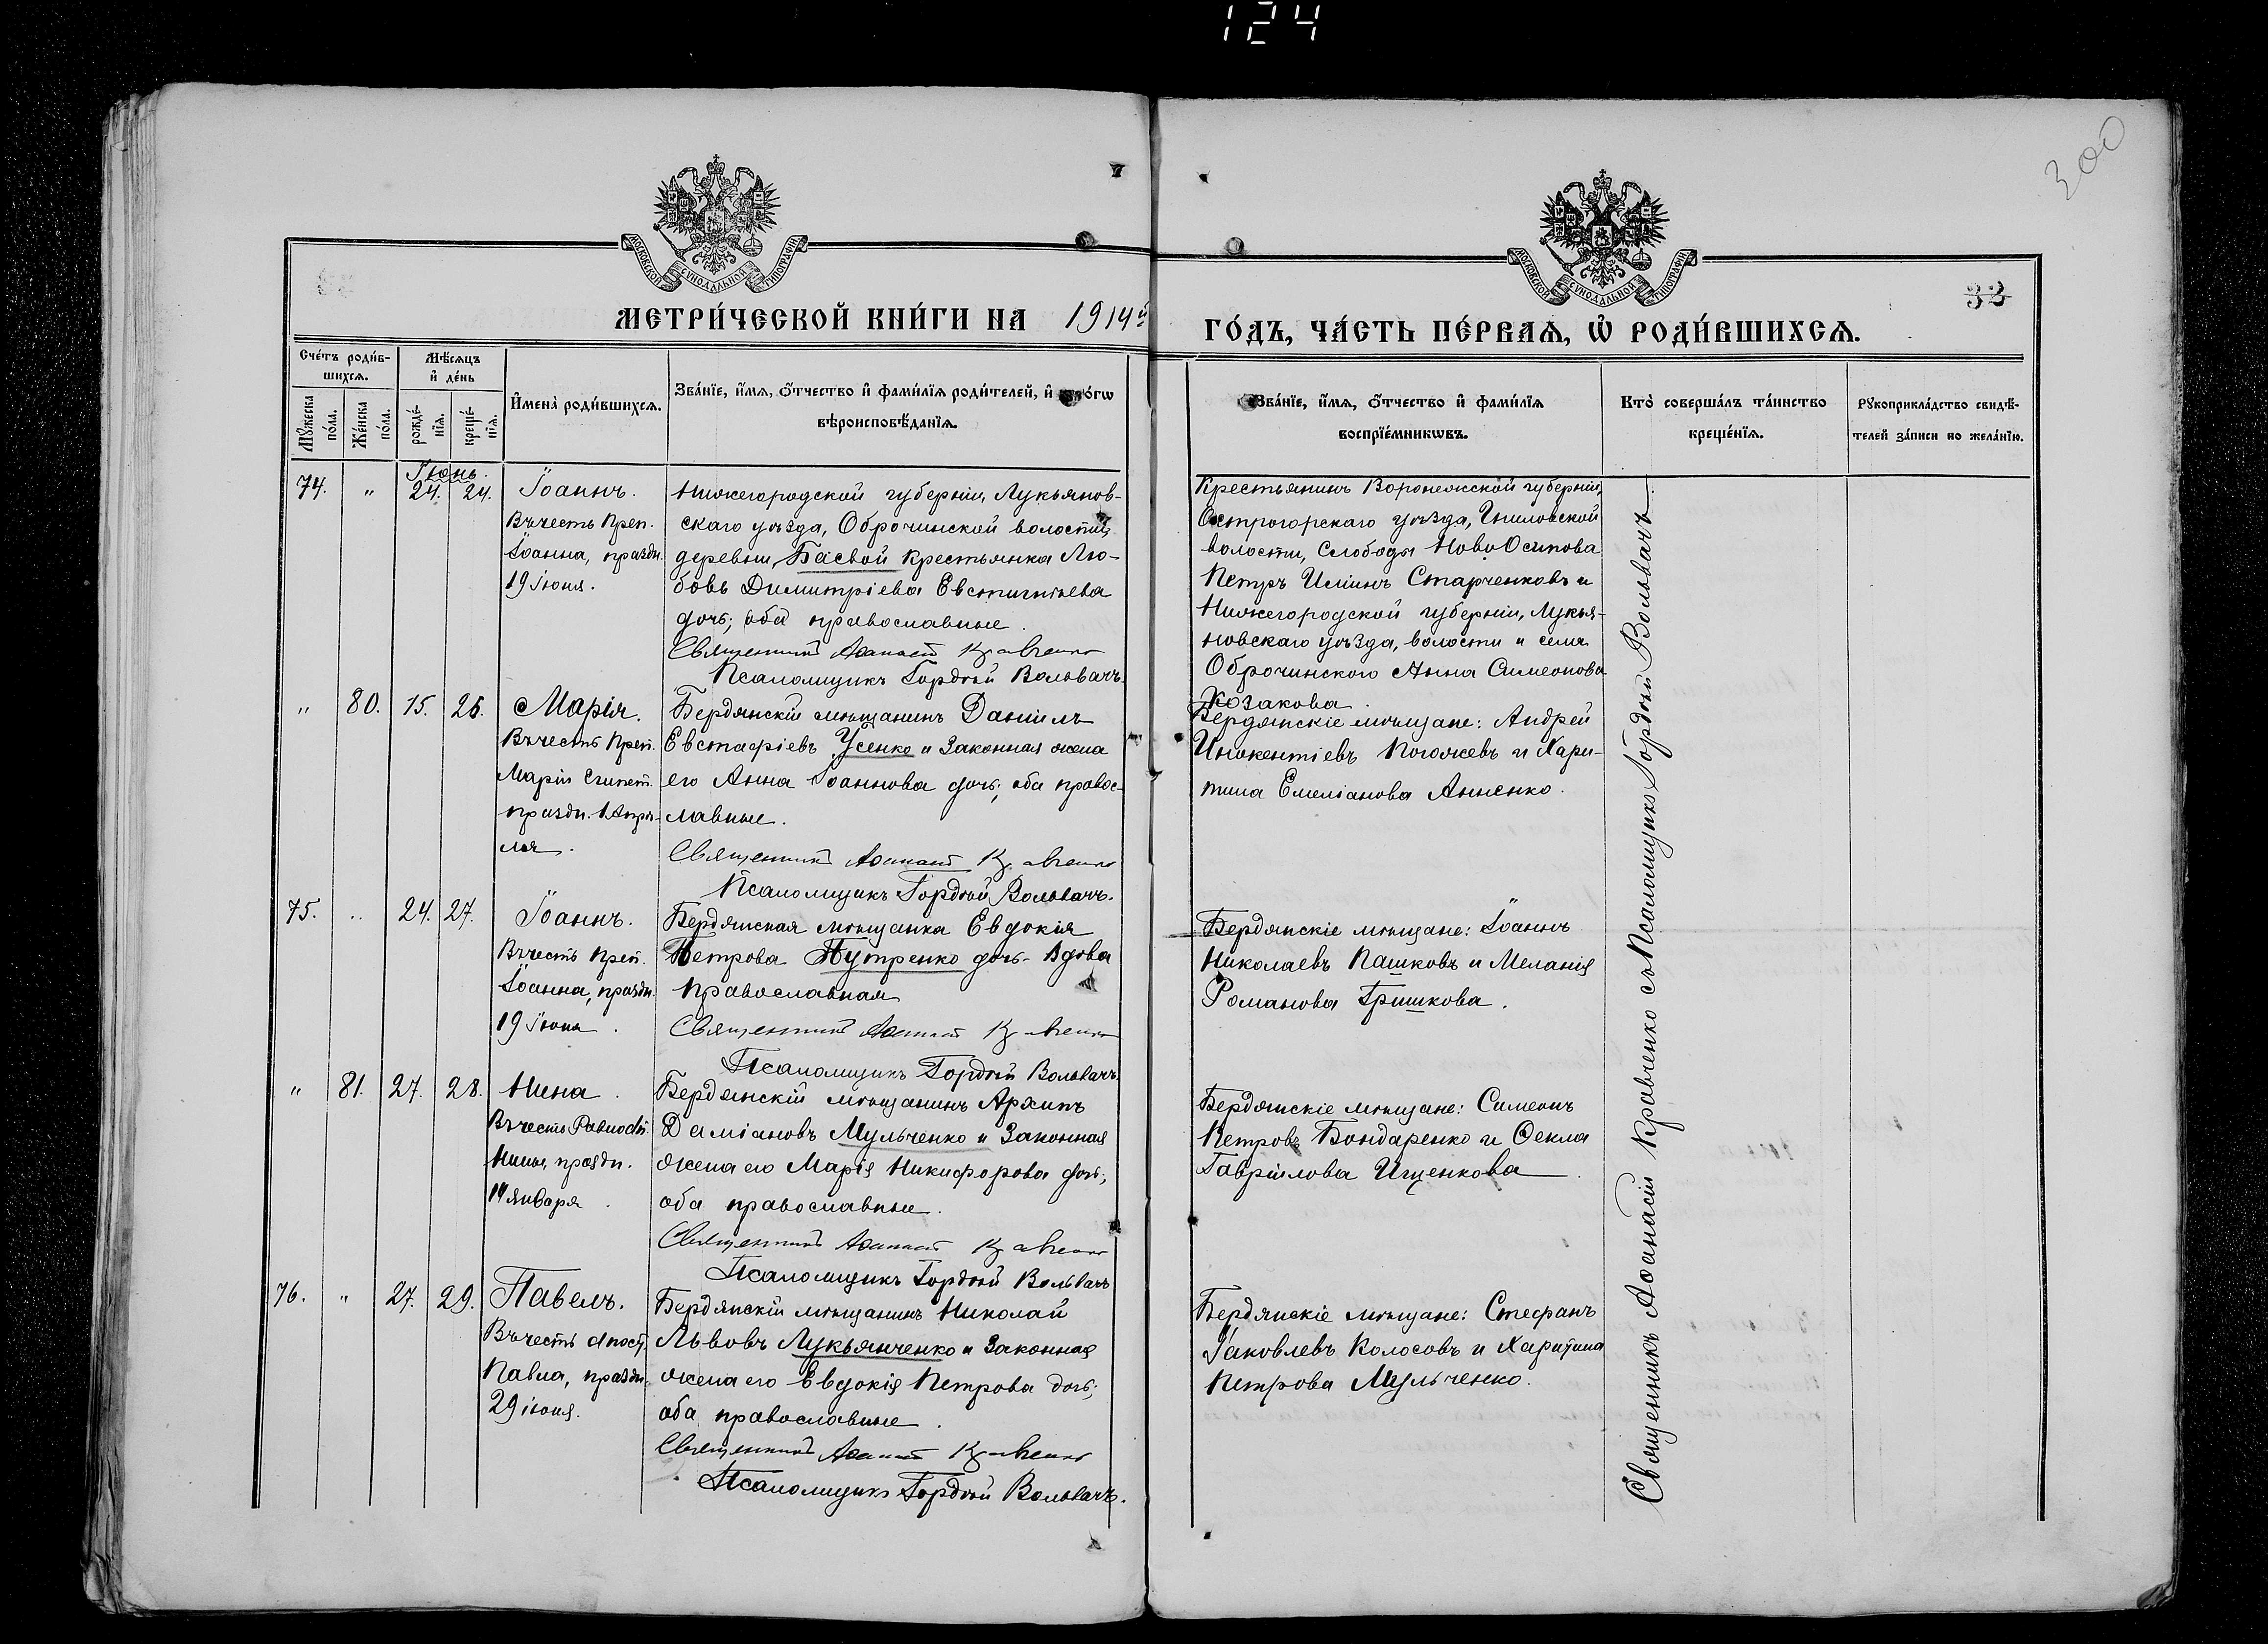 124
300
МОСКОВСКОЙ СѴНОДАЛЬНОЙ ТИПОГРАФІИ
МОСКОВСКОЙ СѴНОДАЛЬНОЙ ТИПОГРАФІИ
32
МЕТРИ́ЧЕСКОЙ КНИ́ГИ НА 1914й
ГО́ДЪ, ЧА́СТЬ ПЕ́РВАѦ, Ѡ҆ РОДИ́ВШИХСѦ.
Сче́тъ роди́в-
шихсѧ.
Мꙋ́жеска по́ла.
Же́нска по́ла.
Мѣ́сѧцъ
и҆ де́нь
рожде́-
нїѧ.
креще́-
нїѧ.
И҆мена̀ роди́вшихсѧ.
Зва́нїе, и҆́мѧ, ѻ҆́тчество и҆ фами́лїѧ роди́телей, и҆
вѣроисповѣ́данїѧ.
Зва́нїе, и҆́мѧ, ѻ҆́тчество и҆ фами́лїѧ
воспрїе́мникѡвъ.
Кто̀ соверша́лъ та́инство
креще́нїѧ.
Рꙋкоприкла́дство свидѣ́-
телей за́писи по жела́нїю.
Іюнь.
74. " 24. 24. Іоаннъ.
Въ честь Преп.
Іоанна, праздн.
19 Іюня.
Нижегородской губерніи, Лукьянов-
скаго уѣзда, Оброчинской волости,
деревни, Баевой крестьянка Лю-
бовь Димитріева Евстигнѣева
дочь; оба православные.
Священникъ Аѳанасій Кравченко
Псаломщикъ Гордѣй Вольвачъ.
Крестьянинъ Воронежской губерніи,
Острогорскаго уѣзда,
волости, Слободы НовоОсипова
Петръ Иліинъ Старченковъ и
Нижегородской губерніи, Лукья-
новскаго уѣзда, волости и села
Оброчинского Анна Симеонова
Козакова.
" 80. 15. 26. Марія.
Въ честь Преп.
Маріи Египет.
праздн. 1 Апрѣ-
ля.
Бердянскій мѣщанинъ Даніилъ
Евстафіевъ Усенко и Законная жена
его Анна Іоаннова дочь; оба правос-
лавные.
Священникъ Аѳанасій Кравченко
Псаломщикъ Гордѣй Вольвачъ.
Бердянскіе мѣщане: Андрей
Инокентіевъ Погожевъ и Хари-
тина Емеліанова Анненко.
75. " 24. 27. Іоаннъ.
Въ честь Преп.
Іоанна, праздн.
19 Іюня.
Бердянская мѣщанка Евдокія
Петрова Путренко дочь - Вдова
православная
Священникъ Аѳанасій Кравченко
Псаломщикъ Гордѣй Вольвачъ.
Бердянскіе мѣщане: Іоаннъ
Николаевъ Пашковъ и Меланія
Романова Гришкова.
" 81. 27. 28. Нина.
Въ честь Равноап.
Нины, праздн.
14 Января.
Бердянскій мѣщанинъ Архипъ
Даміановъ Мульченко и Законная
жена его Марія Никифорова дочь;
оба православные.
Священникъ Аѳанасій Кравченко
Псаломщикъ Гордѣй Вольвачъ
Бердянскіе мѣщане: Симеонъ
Петровъ Бондаренко и Ѳекла
Гавріилова Ищенкова.
76. " 27. 29. Павелъ.
Въ честь Апост.
Павла, праздн.
29 іюня.
Бердянскій мѣщанинъ Николай
Львовъ Лукьянченко и Законная
жена его Евдокія Петрова дочь;
оба православные.
Священникъ Аѳанасій Кравченко
Псаломщикъ Гордѣй Вольвачъ.
Бердянскіе мѣщане: Стефанъ
Іаковлевъ Колосовъ и Харитина
Петрова Мульченко.
Священникъ Аѳанасій Кравченко съ Псаломщикомъ Гордѣй Вольвачъ.